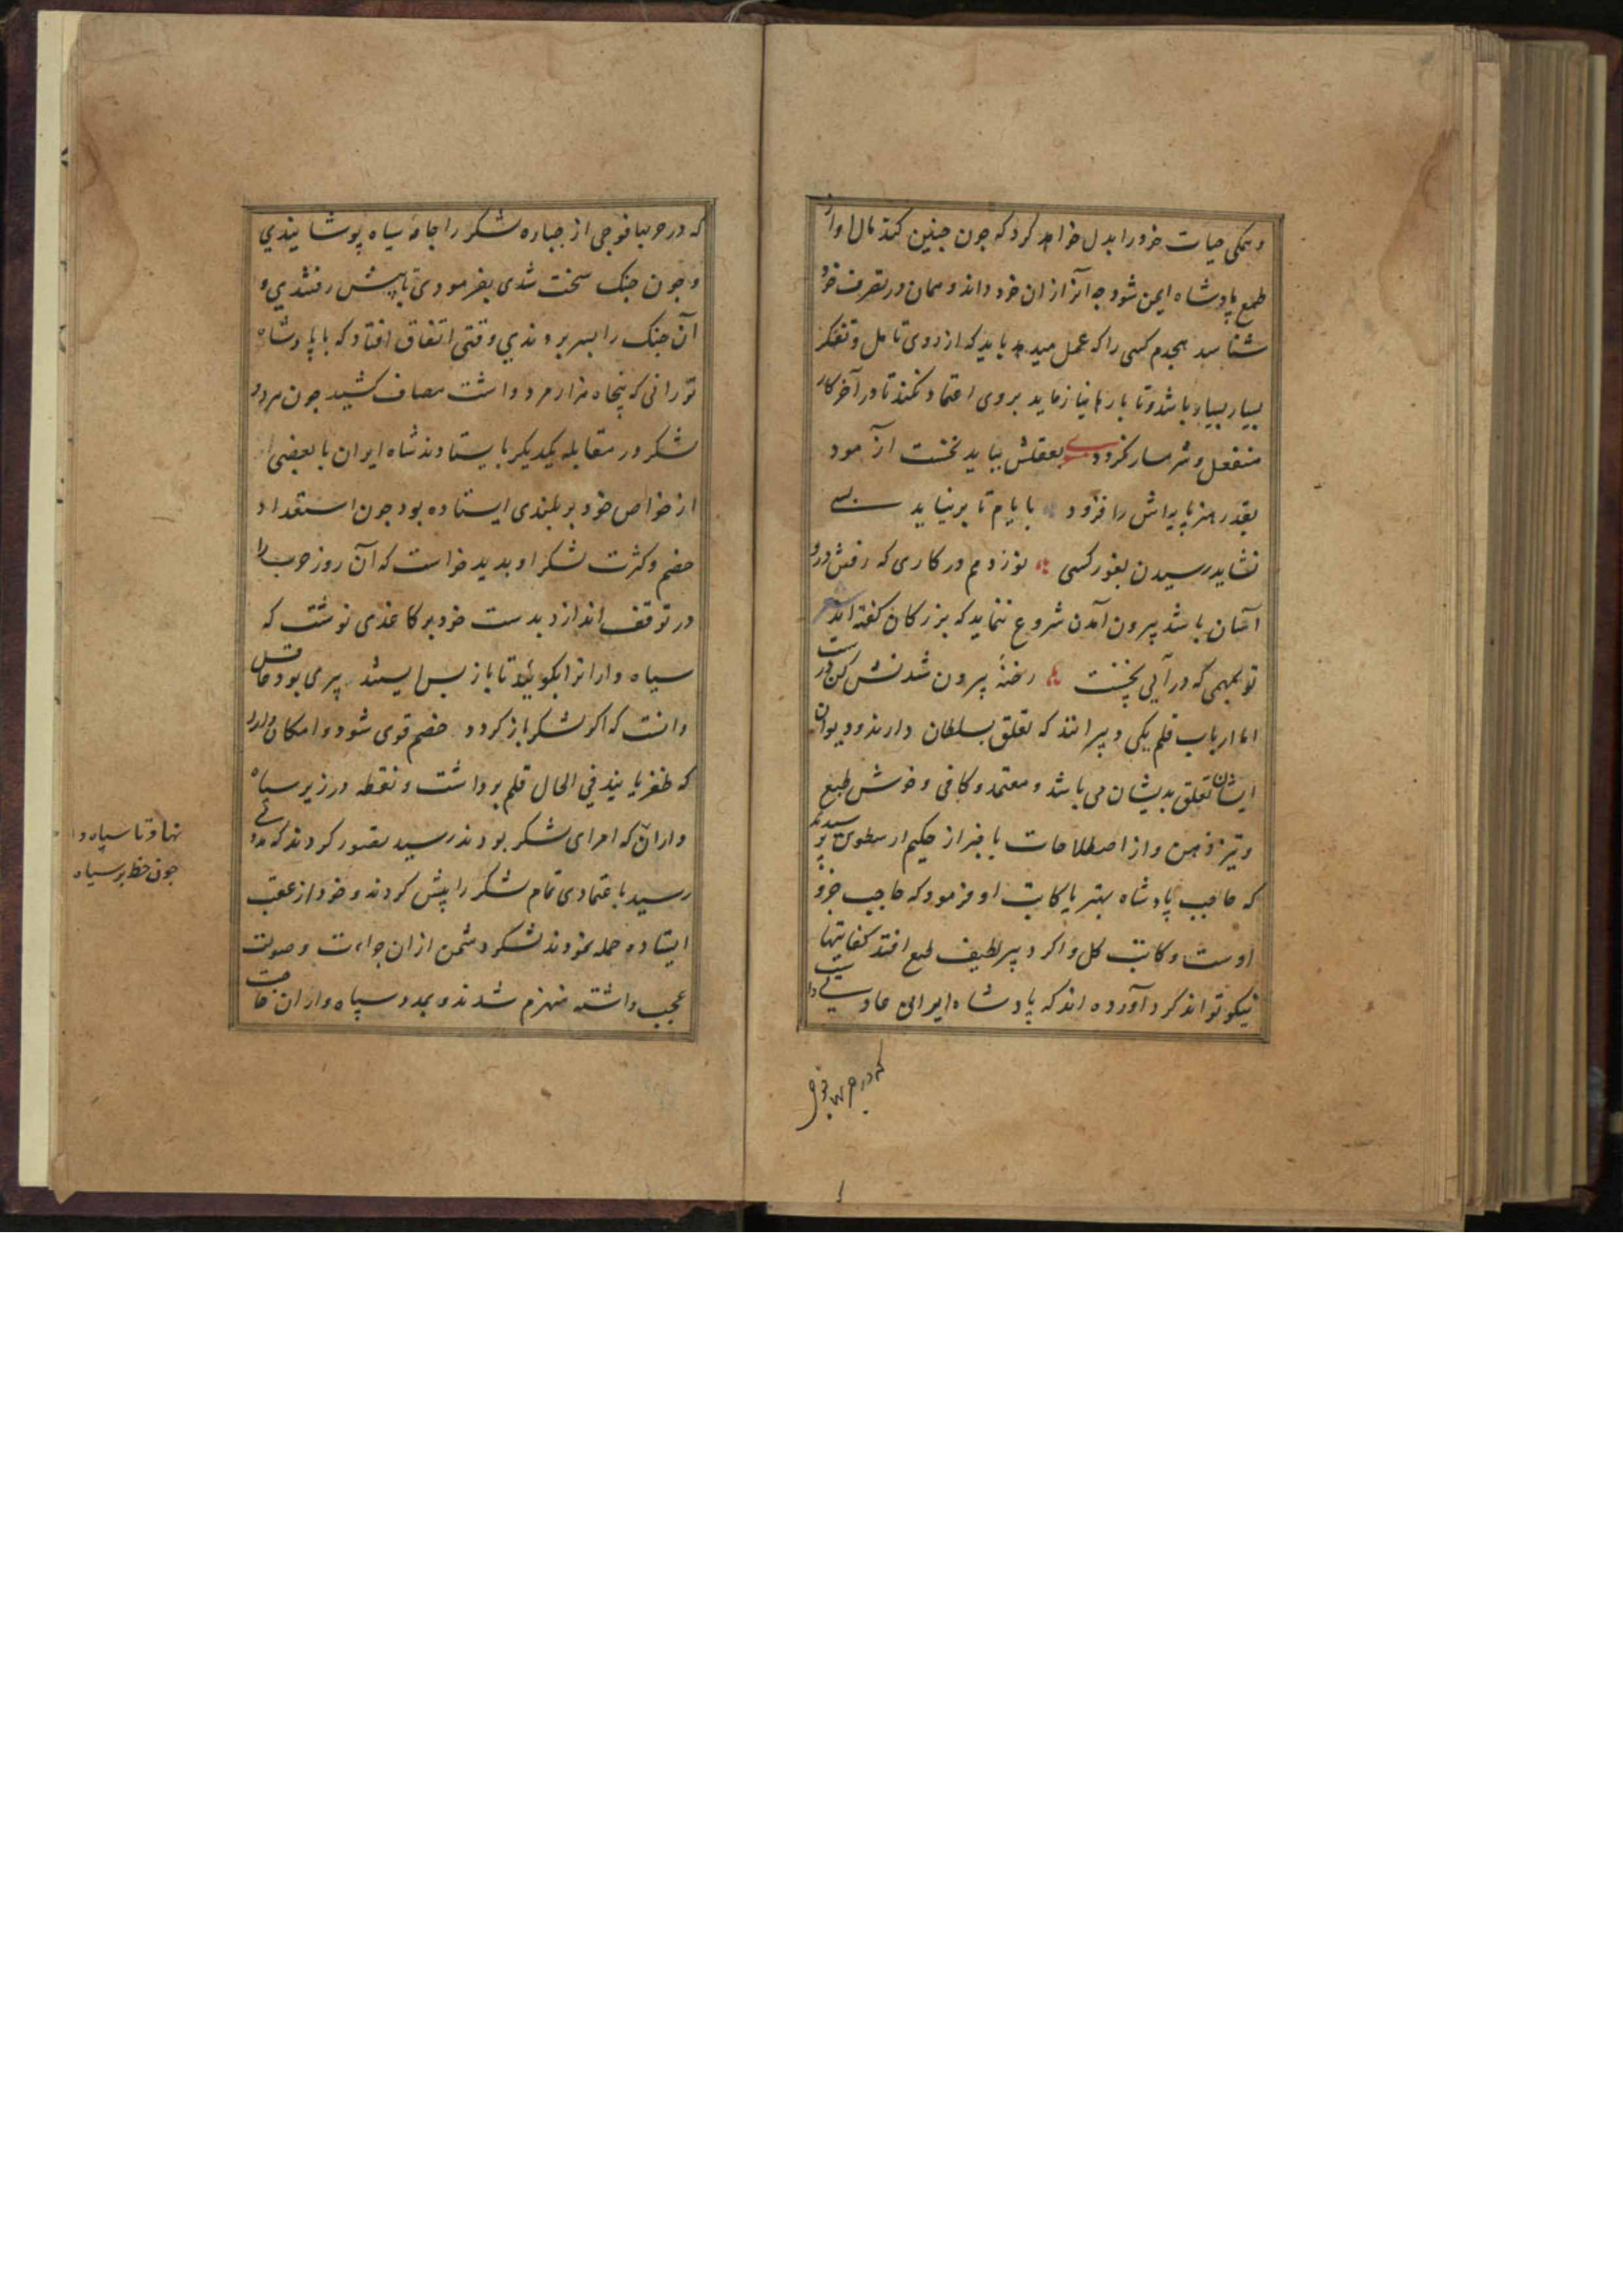 و همکی حیات خود را بدل خواهد کرد که چون چنین کند مال او از
طمع پادشاه ایمن شود چه آنرا از ان خود داند و همان در تصرف خود
شناسد هجدهم کسی را که عمل میدهد باید که از روی تامل و تفکر
بسیار بسیار باشد و تا بارها نیازماید بروی اعتماد نکند تا در آخر کار
منفعل و شرمسار نکردد بعقلش بباید نخست آزمود
بقدر هنر پایه اش را فزود بایام تا برنیاید بسی
نشاید رسیدن بغور کسی نوزدهم در کاری که رفتن درو
آسان باشد بیرون آمدن شروع ننماید که بزرکان کفته اند شعر
تو بمهمی که در آیی نخست رخنهٔ بیرون شدنش کن درست
اما ارباب قلم یکی دبیرانند که تعلق بسلطان دارند و دیوان
ایشان تعلق بدیشان می باشد و معتمد و کافی و خوش طبع
و تیز ذهن و از اصطلاحات با خبر از حکیم ارسطوی پرسیدند
که حاجب پادشاه بهتر یا کاتب او فرمود که حاجب جزو
اوست و کاتب کل و اکر دبیر لطیف طبع افتد کفایتها
نیکو تواند کرد آورده اند که پادشاه ایرانی عادت داشتی
که در حربها فوجی
که در حربها فوجی از جباره لشکر را جامهٔ سیاه پوشانیدی
و چون جنک سخت شدی بفرمودی تا پیش رفتندی و
آن جنک را بسر بردندی وقتی اتفاق افتاد که با پادشاه
تورانی که پنجاه هزار مرد داشت مصاف کشید چون هر دو
لشکر در مقابله یکدیکر بایستادند شاه ایران با بعضی
از خواص خود بر بلندی ایستاده بود چون استعداد
خصم و کثرت لشکر او بدید خواست که آن روز حرب را
در توقف اندازد بدست خود بر کاغذی نوشت که
سیاه دارانرا بکوئید تا باز پس ایستند دبیری بود فاضل
دانست که اکر لشکر باز کردد خصم قوی شود و امکان دارد
که ظفر یابند فی الحال قلم برداشت و نقطه در زیر سیاه
نهاد تا سپاه د
چون خط بر سپاه
داران که امرای لشکر بودند رسید تصور کردند که مددی
رسید باعتمادی تمام لشکر را پیش کردند و خود از عقب
ایستاده حمله نمودند لشکر دشمن از ان جراءت و صولت
عجب داشته منهزم شدند و بمدد سپاه داران